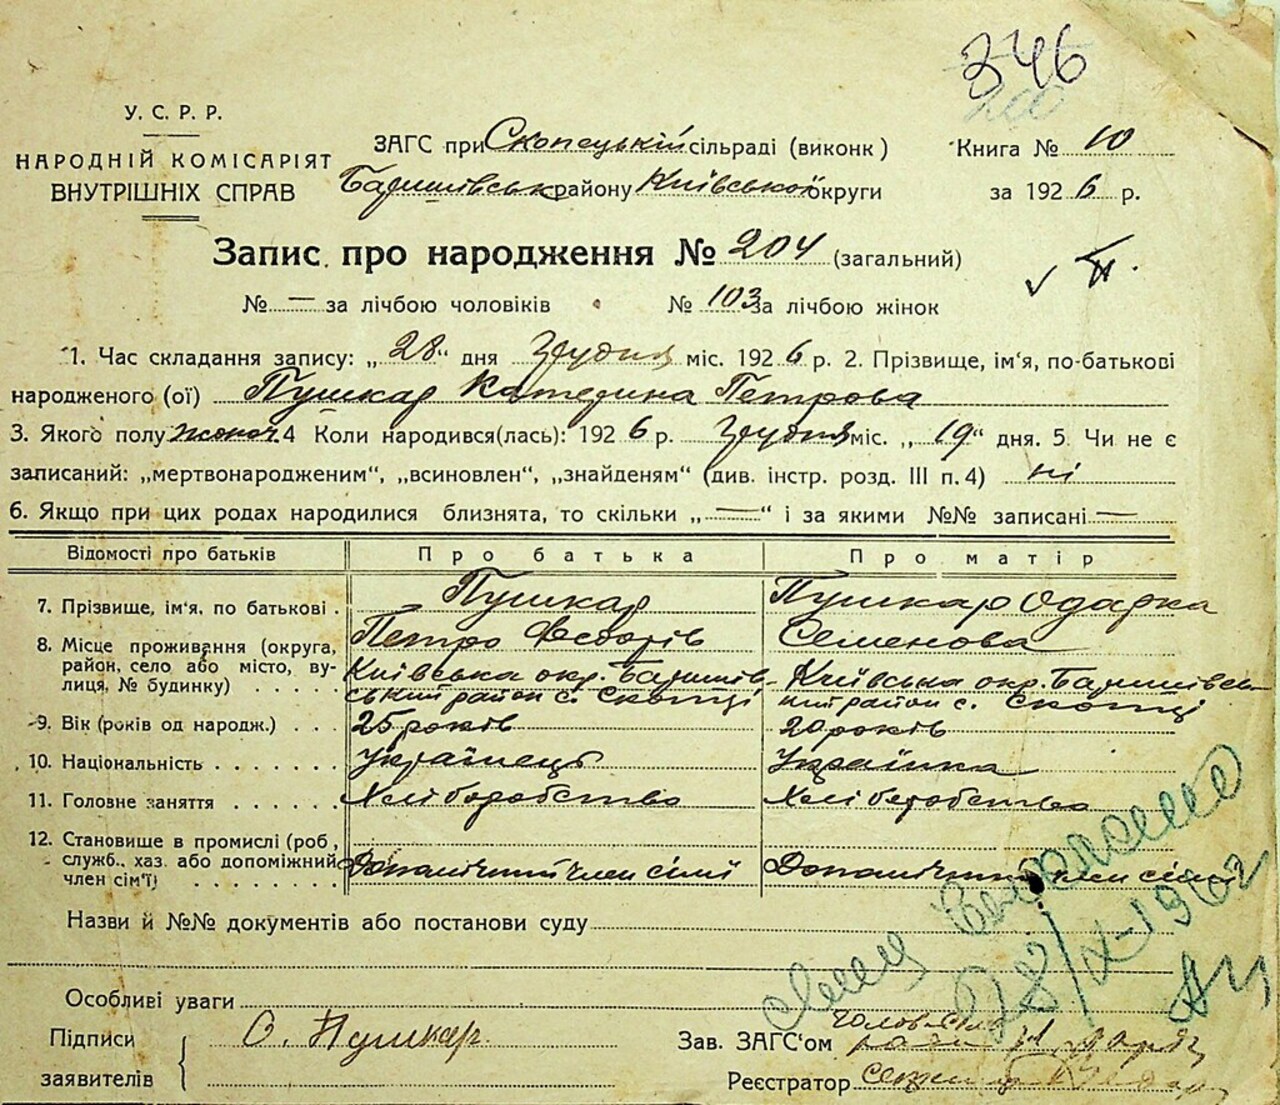 346
200
У. С. Р. Р.
НАРОДНІЙ КОМІСАРІЯТ
ВНУТРІШНІХ СПРАВ
ЗАГС при Скопецькій сільраді (виконк)
Баришівськ району Київської округи
Книга № 10
за 1926 р.
Запис про народження № 204 (загальний)
№ — за лічбою чоловіків № 103 за лічбою жінок
1. Час складання запису: „28“ дня Грудня міс. 1926 р. 2. Прізвище, ім‘я, по-батькові
народженого (ої) Пушкар Катерина Петрова
3. Якого полу жіноч. 4 Коли народився(лась): 1926 р. Грудня міс. „19“ дня. 5. Чи не є
записаний: „мертвонародженим“, „всиновлен“, „знайденям“ (див. інстр. розд. III п. 4) ні
6. Якщо при цих родах народилися близнята, то скільки „—“ і за якими №№ записані —
Відомості про батьків Про батька Про матір
7. Прізвище, ім‘я, по батькові . Пушкар Пушкар Одарка
Петро Федорів Семенова
8. Місце проживання (округа, район, село або місто, вулиця, № будинку) . . . . . Київська окр. Баришівський район с. Скопці Київська окр. Баришівський район с. Скопці
9. Вік (років од народж.) . . . 25 років 20 років
10. Національність . . . . . . . Українець Українка
11. Головне заняття . . . . . . Хліборобство Хліборобство
12. Становище в промислі (роб, служб., хаз. або допоміжний член сім‘ї) . . . . . . . . Допомічний член сімї Допомічний член сімї
Назви й №№ документів або постанови суду
Особливі уваги
28/X-1962
Підписи
заявителів
О. Пушкар.
Зав. ЗАГС‘ом
Реєстратор